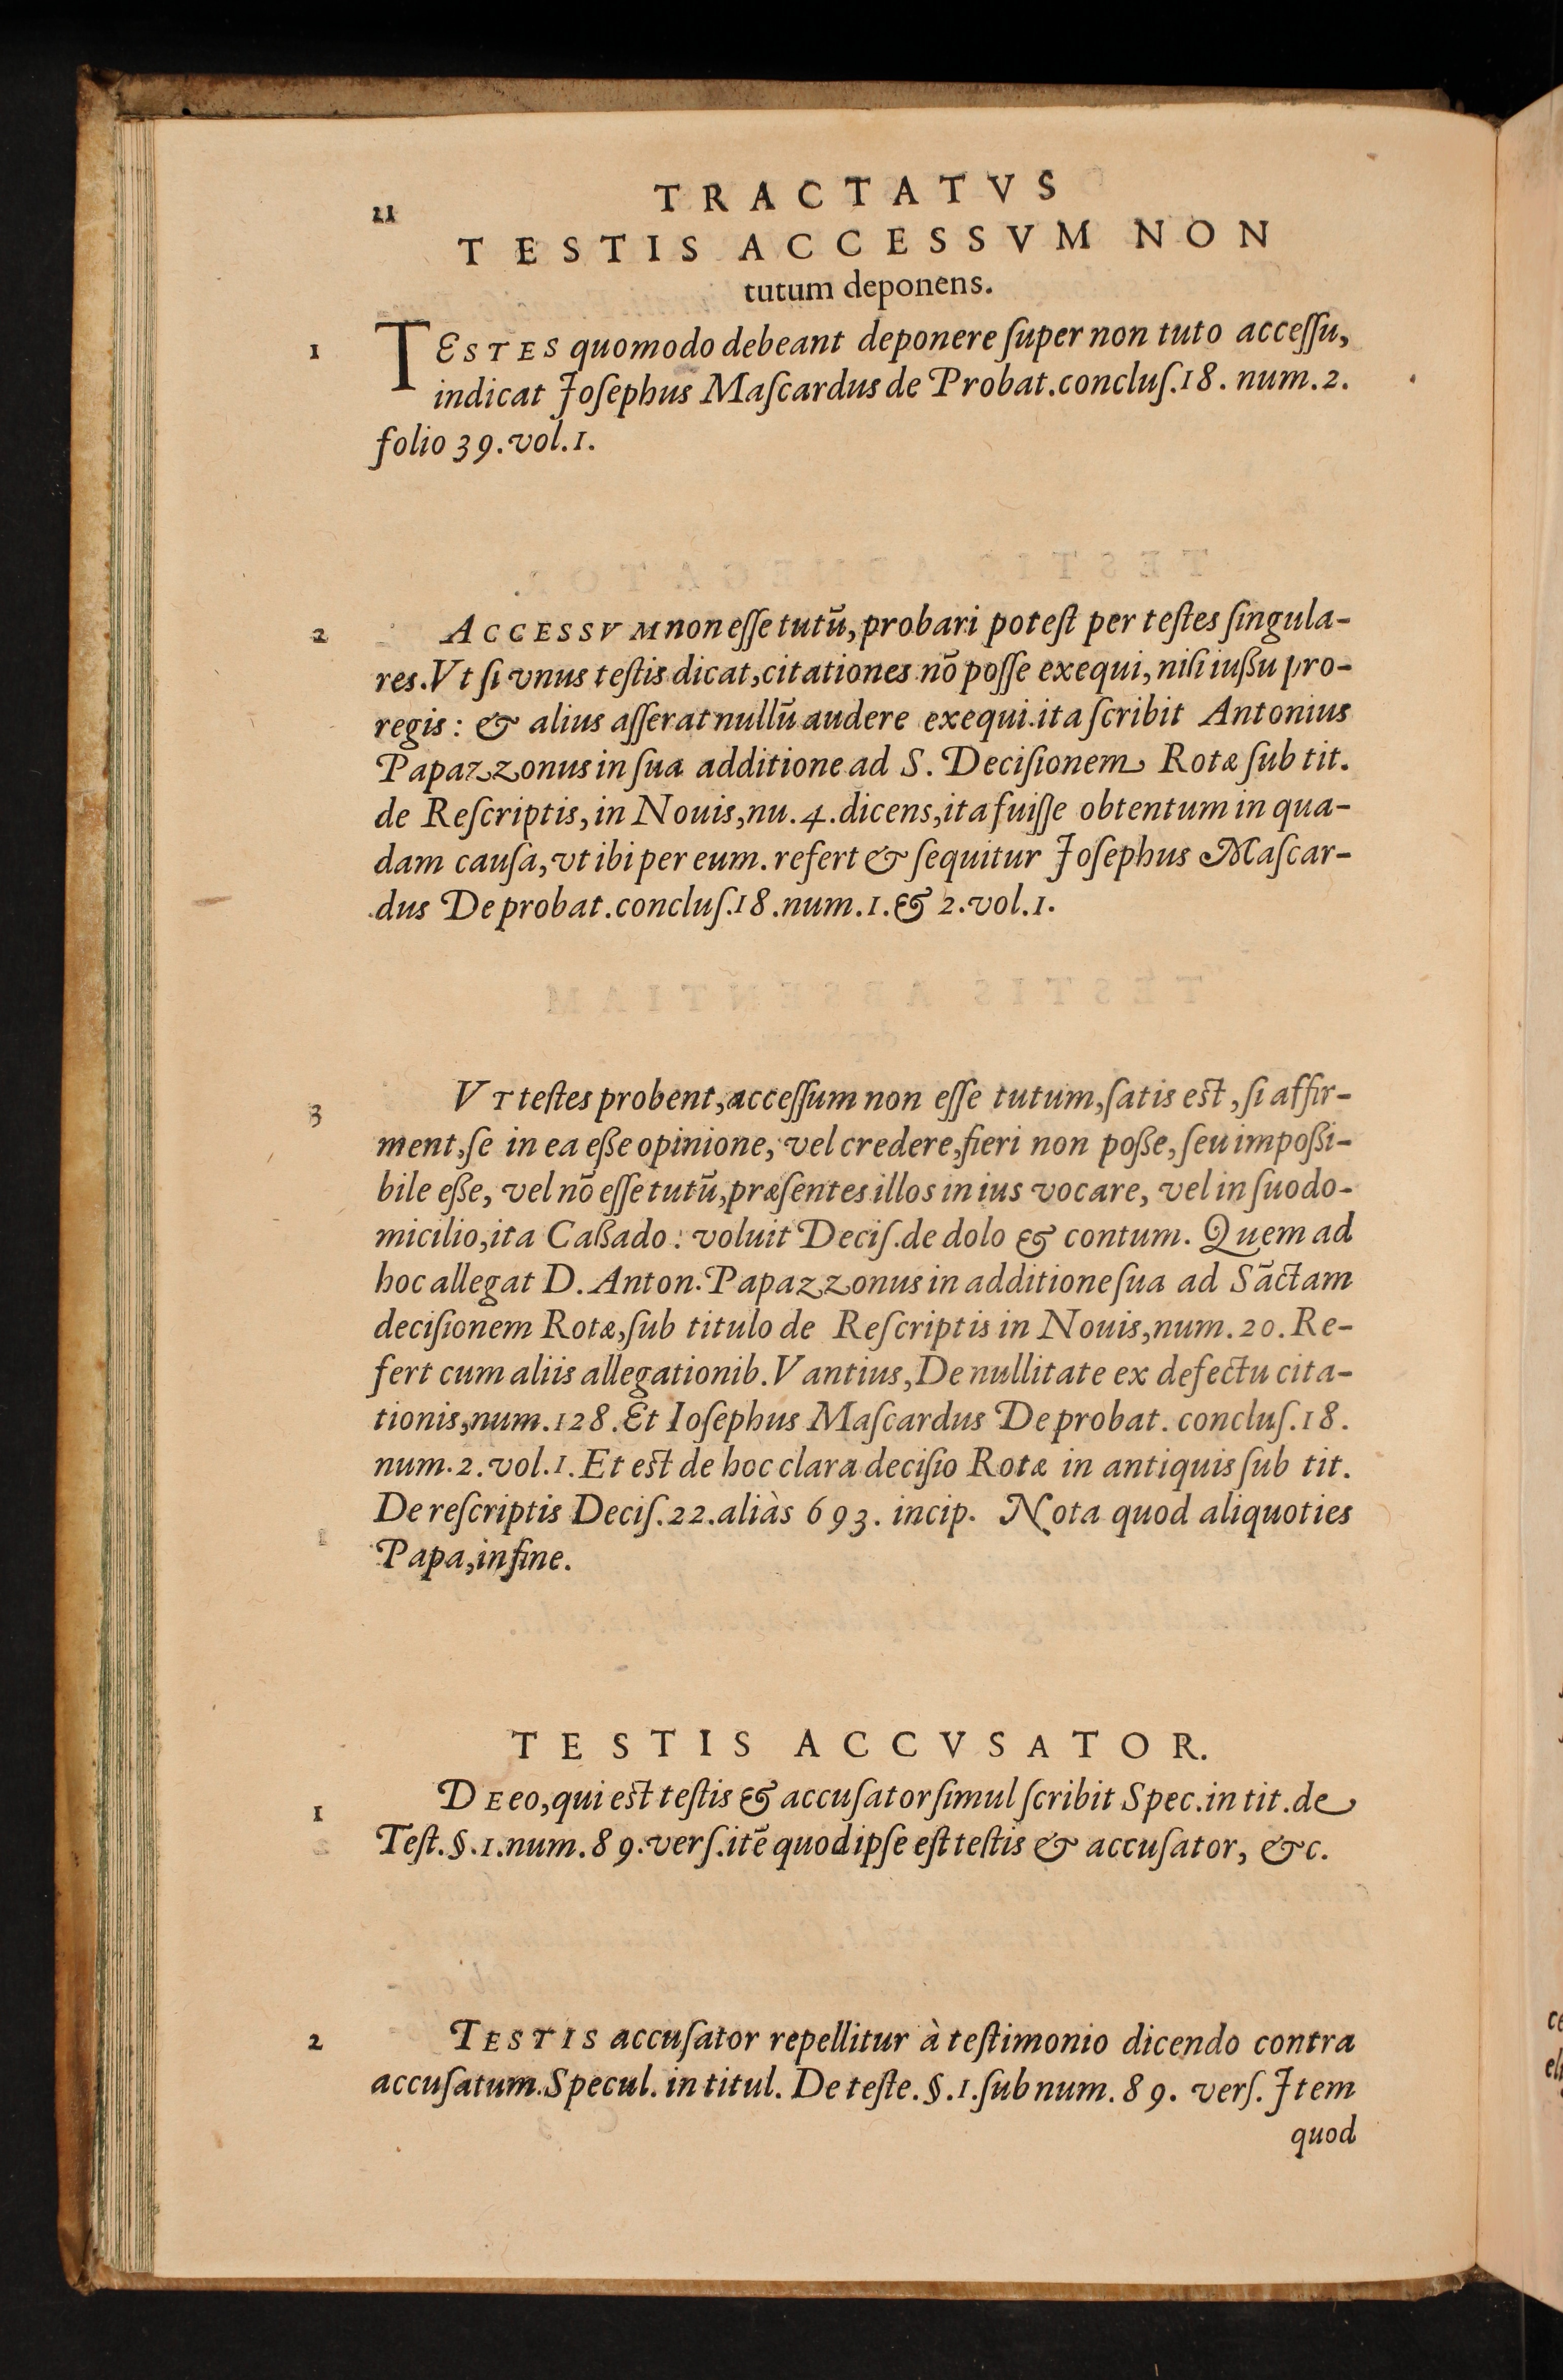 21
TRACTATVS
TESTIS ACCESSVM NON
tutum deponens.
1 TESTES quomodo debeant deponere ſuper non tuto acceſſu,
indicat Joſephus Maſcardus de Probat.concluſ.18. num.2.
folio 39.vol.1.
2 ACCESSVM non eſſe tutū, probari poteſt per teſtes ſingula-
res.Vt ſi vnus teſtis dicat, citationes nō poſſe exequi, niſi iußu pro-
regis: & alius aſſerat nullū audere exequi.ita ſcribit Antonius
Papazzonus in ſua additione ad S. Deciſionem Rotæ ſub tit.
de Reſcriptis, in Nouis, nu.4.dicens, ita fuiſſe obtentum in qua-
dam cauſa, vt ibi per eum. refert & ſequitur Joſephus Maſcar-
dus De probat.concluſ.18.num.1.& 2.vol.1.
3 VT teſtes probent, acceſſum non eſſe tutum, ſatis est, ſi affir-
ment, ſe in ea eße opinione, vel credere, fieri non poße, ſeu impoßi-
bile eße, vel nō eſſe tutū, præſentes illos in ius vocare, vel in ſuo do-
micilio, ita Caßado: voluit Deciſ.de dolo & contum. Quem ad
hoc allegat D. Anton. Papazzonus in additione ſua ad Sāctam
deciſionem Rotæ, ſub titulo de Reſcriptis in Nouis, num.20. Re-
fert cum aliis allegationib. Vantius, De nullitate ex defectu cita-
tionis, num.128. Et Ioſephus Maſcardus De probat. concluſ.18.
num.2.vol.1. Et est de hoc clara deciſio Rotæ in antiquis ſub tit.
De reſcriptis Deciſ.22.aliàs 693. incip. Nota quod aliquoties
Papa, in fine.
TESTIS ACCVSATOR.
1 DE eo, qui est teſtis & accuſator ſimul ſcribit Spec.in tit.de
Teſt.§.1.num.89.verſ.itē quod ipſe eſt teſtis & accuſator, &c.
2 TESTIS accuſator repellitur à teſtimonio dicendo contra
accuſatum.Specul. in titul. De teſte.§.1.ſub num.89. verſ. Jtem
quod